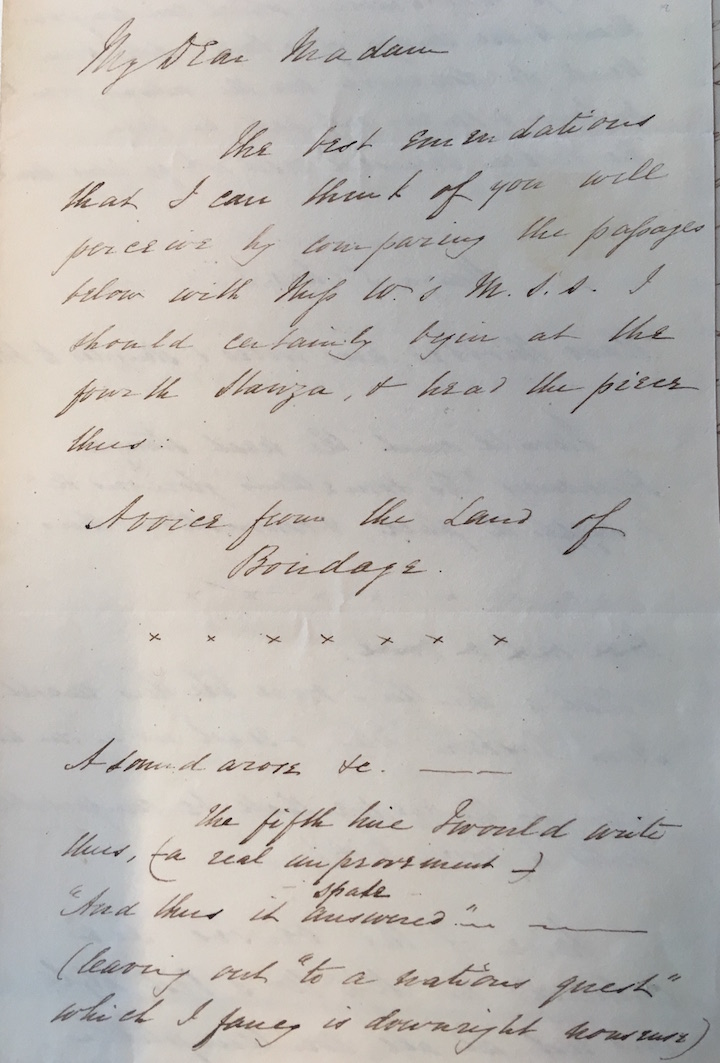 My Dear Madam
The best emendations
that I can think of you will
perceive by comparing the passages
below with Miss W.'s M.S.S. I
should certainly begin at the
fourth Stanza, & head the piece
thus:
A voice from the Land of
Bondage.
× × × × × × ×
A sound arose &c. ——
The fifth line I would write
thus, (a real improvement —)
spake
"And thus it answered" — ——
(leaving out "to a nations quest"
which I fancy is downright nonsense)